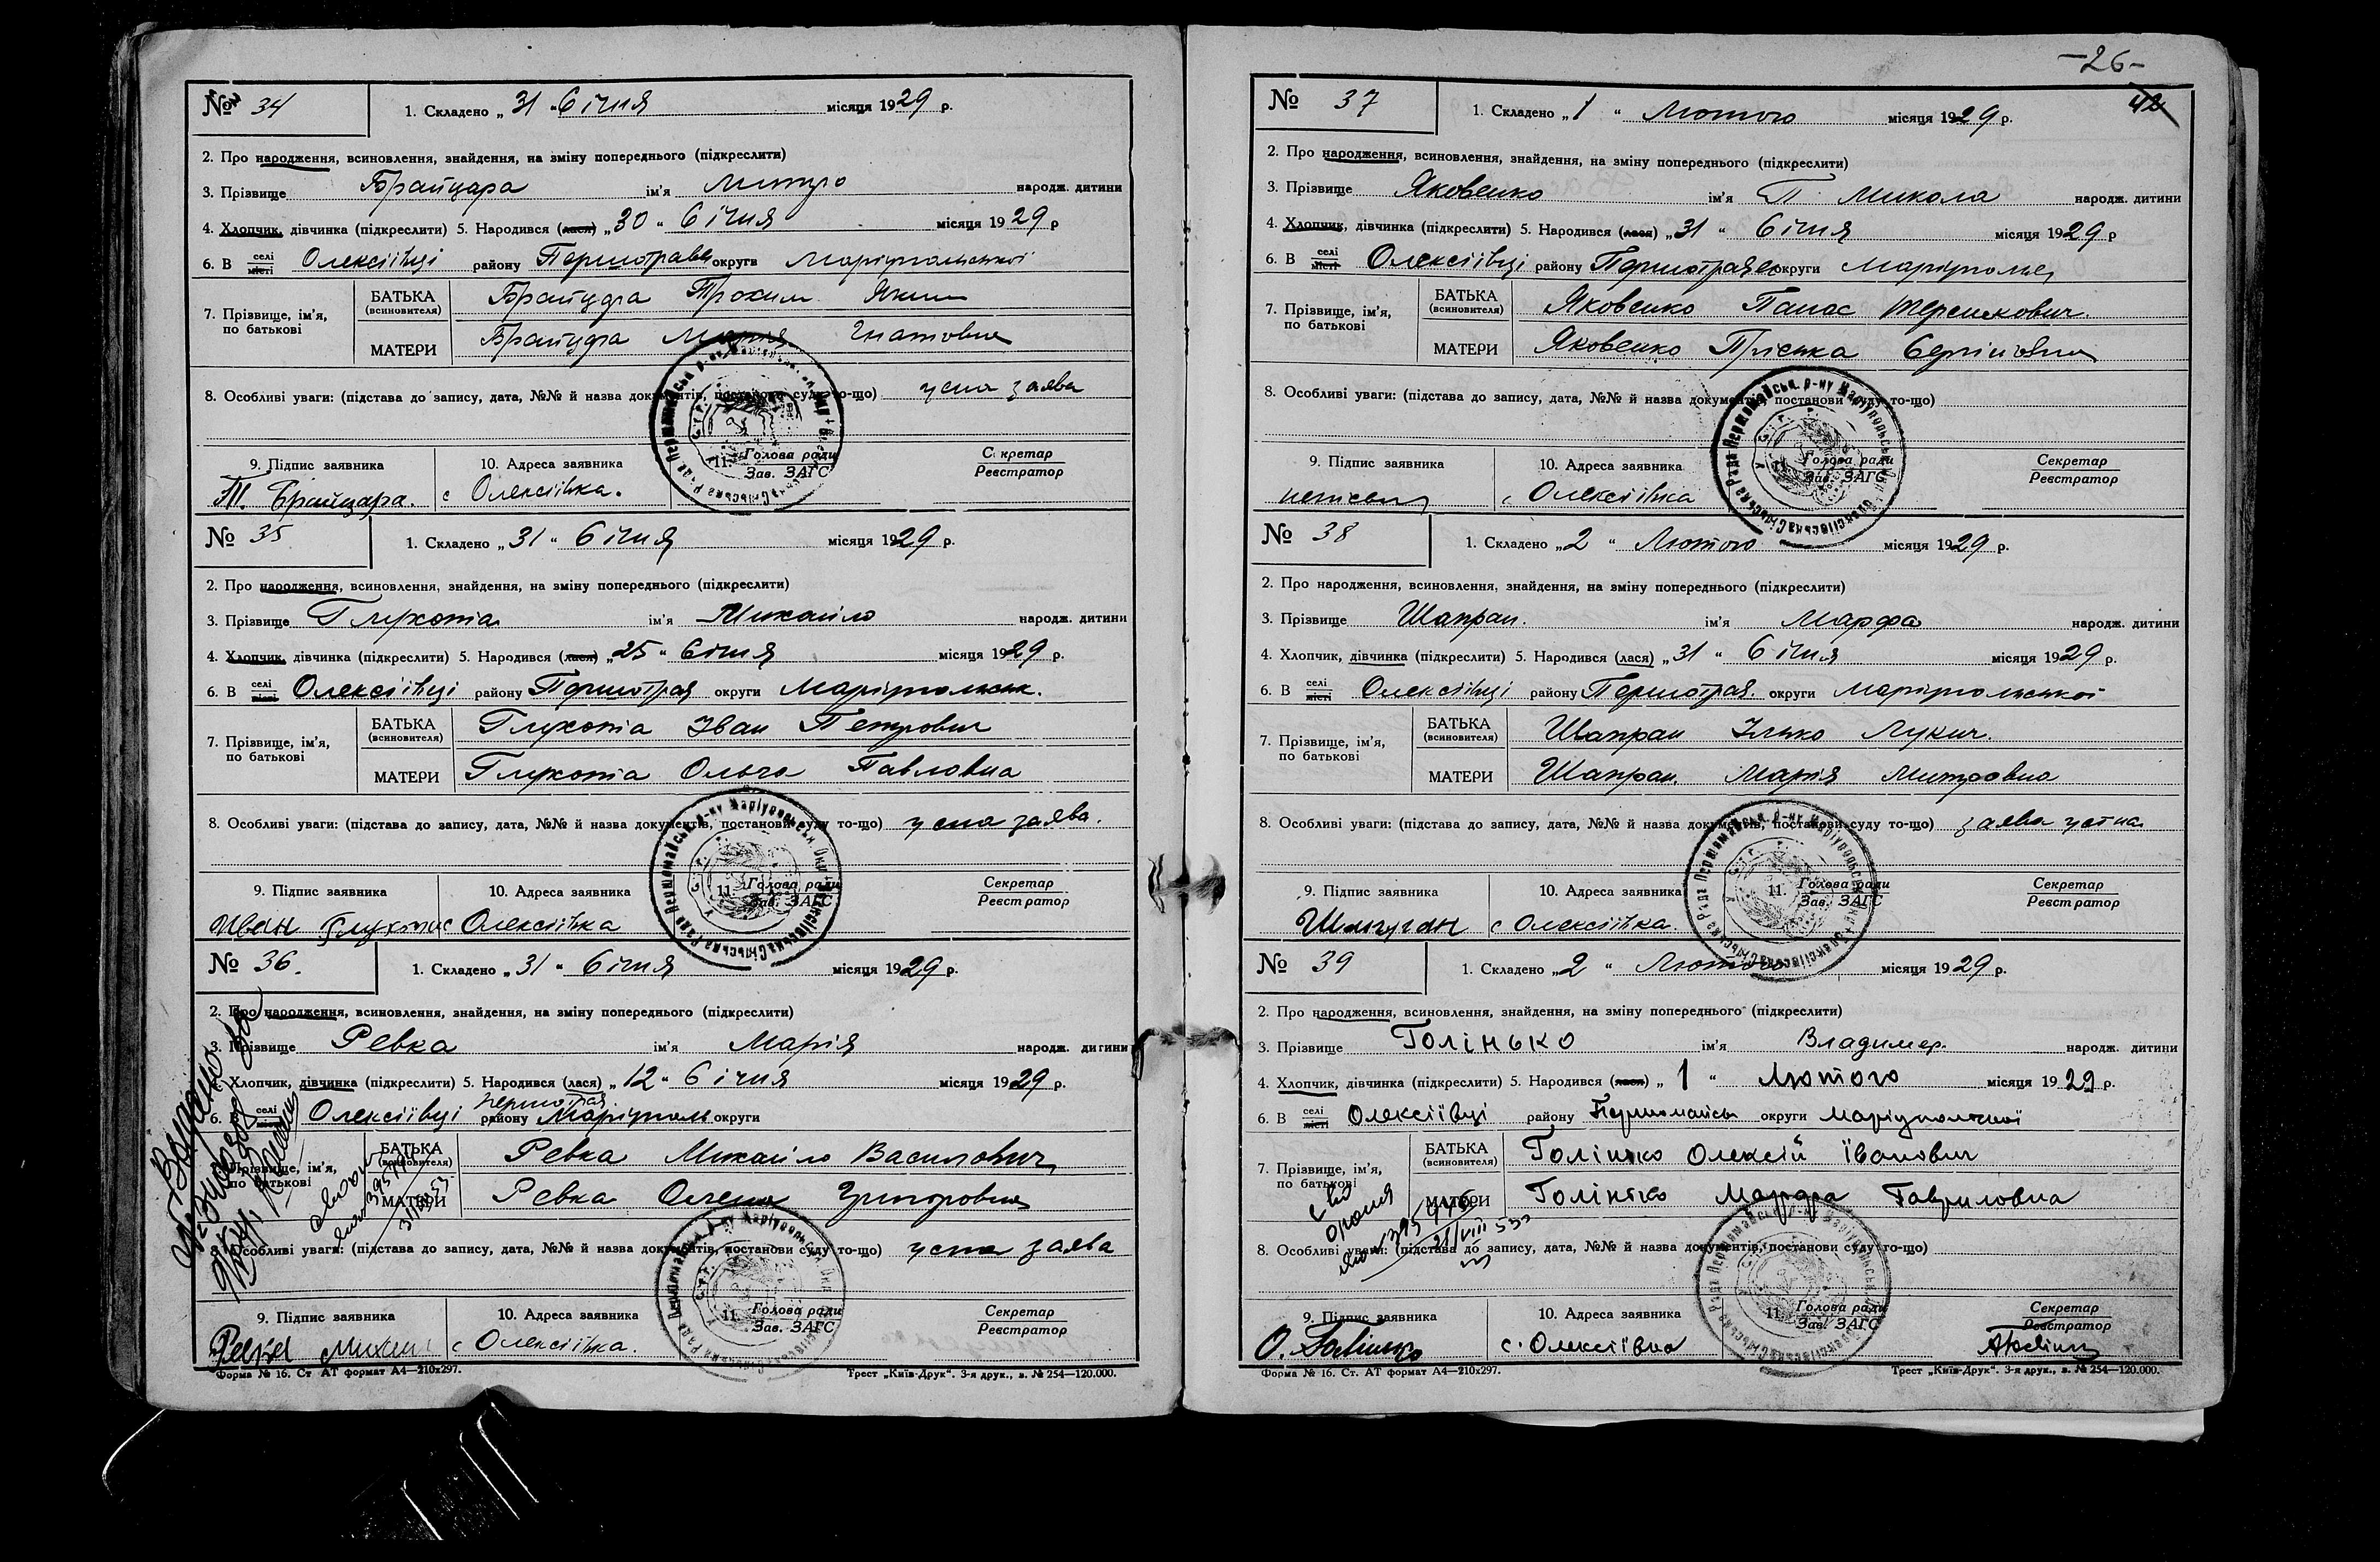 № 34 1. Складено „31“ Січня місяця 1929 р.
2. Про народження, всиновлення, знайдення, на зміну попереднього (підкреслити)
3. Прізвище Брайцара ім'я народж. дитини
4. Хлопчик, дівчинка (підкреслити) 5. Народився (лася) „30“ Січня місяця 1929 р
6. В селі місті Олексіївці району округи Маріупольської
7. Прізвище, ім'я, по батькові
БАТЬКА (всиновителя) Трохим
МАТЕРИ Марія Гнатовна
8. Особливі уваги: (підстава до запису, дата, №№ й назва документів, постанови суду то-що) усна заява
9. Підпис заявника 10. Адреса заявника 11. Голова ради Зав. ЗАГС Секретар Реєстратор
Т. Брайцара. с Олексіївка.
№ 35 1. Складено „31“ Січня місяця 1929 р.
2. Про народження, всиновлення, знайдення, на зміну попереднього (підкреслити)
3. Прізвище Глухота ім'я Михайло народж. дитини
4. Хлопчик, дівчинка (підкреслити) 5. Народився (лася) „25“ Січня місяця 1929 р.
6. В селі місті Олексіївці району округи Маріупольськ.
7. Прізвище, ім'я, по батькові
БАТЬКА (всиновителя) Глухота Іван Петрович
МАТЕРИ Глухота Ольга Павловна
8. Особливі уваги: (підстава до запису, дата, №№ й назва документів, постанови суду то-що) усна заява.
9. Підпис заявника 10. Адреса заявника 11. Голова ради Зав. ЗАГС Секретар Реєстратор
Иван с Олексіївка
№ 36. 1. Складено „31“ Січня місяця 1929 р.
2. Про народження, всиновлення, знайдення, на зміну попереднього (підкреслити)
3. Прізвище Ревка ім'я Марія народж. дитини
4. Хлопчик, дівчинка (підкреслити) 5. Народився (лася) „12“ Січня місяця 1929 р.
6. В селі місті Олексіївці району Маріуполь округи
7. Прізвище, ім'я, по батькові
БАТЬКА (всиновителя) Ревка Михайло Василович
МАТЕРИ Ревка Олена Григоровна
8. Особливі уваги: (підстава до запису, дата, №№ й назва документів, постанови суду то-що) усна заява
9. Підпис заявника 10. Адреса заявника 11. Голова ради Зав. ЗАГС Секретар Реєстратор
Ревка с Олексіївка.
Форма № 16. Ст АТ формат А4—210х297. Трест „Київ-Друк“. 3-я друк., з. № 254—120.000.
-26-
42
№ 37 1. Складено „1“ Лютого місяця 1929 р.
2. Про народження, всиновлення, знайдення, на зміну попереднього (підкреслити)
3. Прізвище Яковенко ім'я Микола народж. дитини
4. Хлопчик, дівчинка (підкреслити) 5. Народився (лася) „31“ Січня місяця 1929 р
6. В селі місті Олексіївці району округи
7. Прізвище, ім'я, по батькові
БАТЬКА (всиновителя) Яковенко Панас
МАТЕРИ Яковенко Пріська
8. Особливі уваги: (підстава до запису, дата, №№ й назва документів, постанови суду то-що)
9. Підпис заявника 10. Адреса заявника 11. Голова ради Зав. ЗАГС Секретар Реєстратор
с Олексіївка
№ 38 1. Складено „2“ Лютого місяця 1929 р.
2. Про народження, всиновлення, знайдення, на зміну попереднього (підкреслити)
3. Прізвище Шапран. ім'я Марфа народж. дитини
4. Хлопчик, дівчинка (підкреслити) 5. Народився (лася) „31“ Січня місяця 1929 р.
6. В селі місті Олексіївці району округи Маріупольської
7. Прізвище, ім'я, по батькові
БАТЬКА (всиновителя) Шапран Ілько Лукич.
МАТЕРИ Шапран. Марія Митровна
8. Особливі уваги: (підстава до запису, дата, №№ й назва документів, постанови суду то-що) заява устна
9. Підпис заявника 10. Адреса заявника 11. Голова ради Зав. ЗАГС Секретар Реєстратор
с Олексіївка.
№ 39 1. Складено „2“ Лютого місяця 1929 р.
2. Про народження, всиновлення, знайдення, на зміну попереднього (підкреслити)
3. Прізвище Голінько ім'я Владимер. народж. дитини
4. Хлопчик, дівчинка (підкреслити) 5. Народився (лася) „1“ Лютого місяця 1929 р.
6. В селі місті Олексіївці району Першомайськ округи Маріупольської
7. Прізвище, ім'я, по батькові
БАТЬКА (всиновителя) Голінько Олексій Іванович
МАТЕРИ Голінько Марфа Гавриловна
8. Особливі уваги: (підстава до запису, дата, №№ й назва документів, постанови суду то-що)
9. Підпис заявника 10. Адреса заявника 11. Голова ради Зав. ЗАГС Секретар Реєстратор
О. Голінько с. Олексіївка
Форма № 16. Ст. АТ формат А4—210х297. Трест „Київ-Друк“. 3-я друк., з. № 254—120.000.